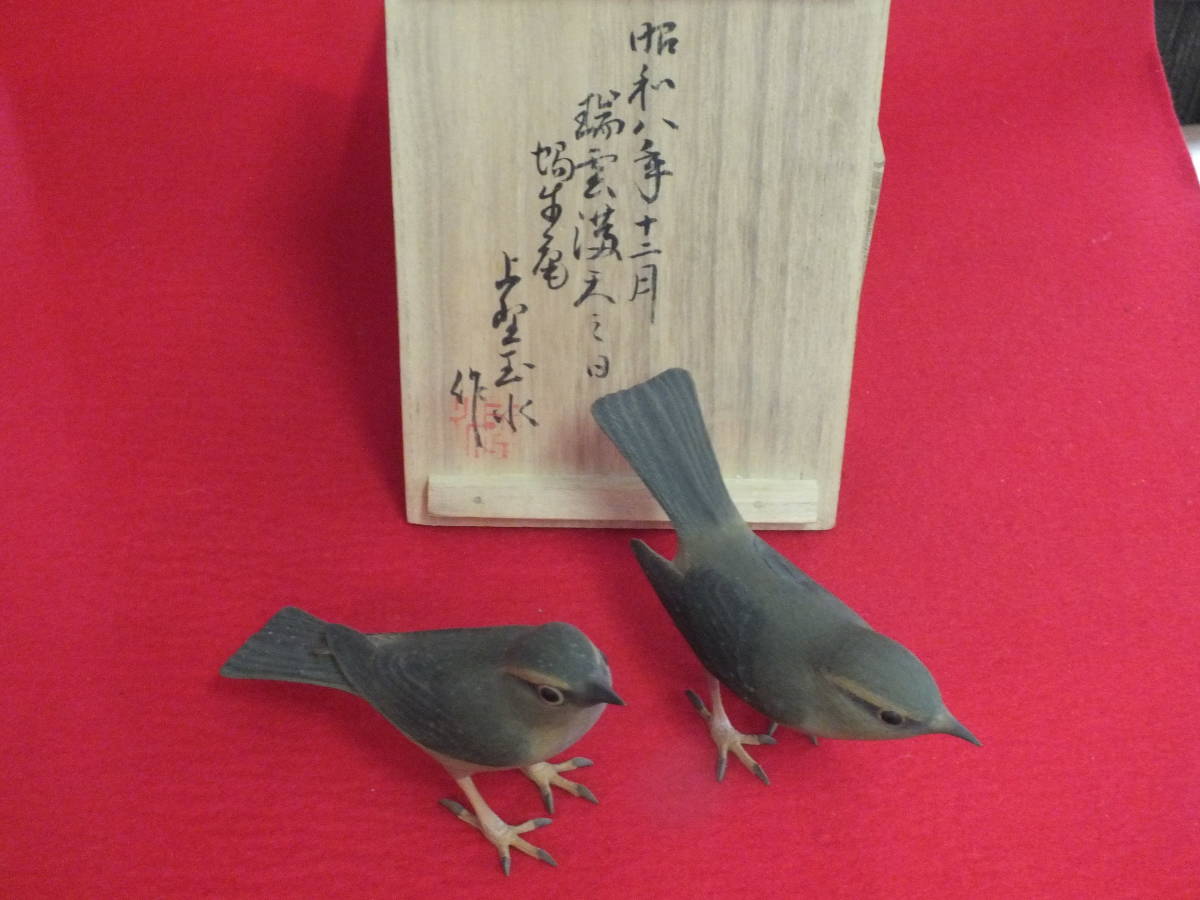 昭和八年十二月
瑞雲満天之日
蝸牛庵
上野玉水
作